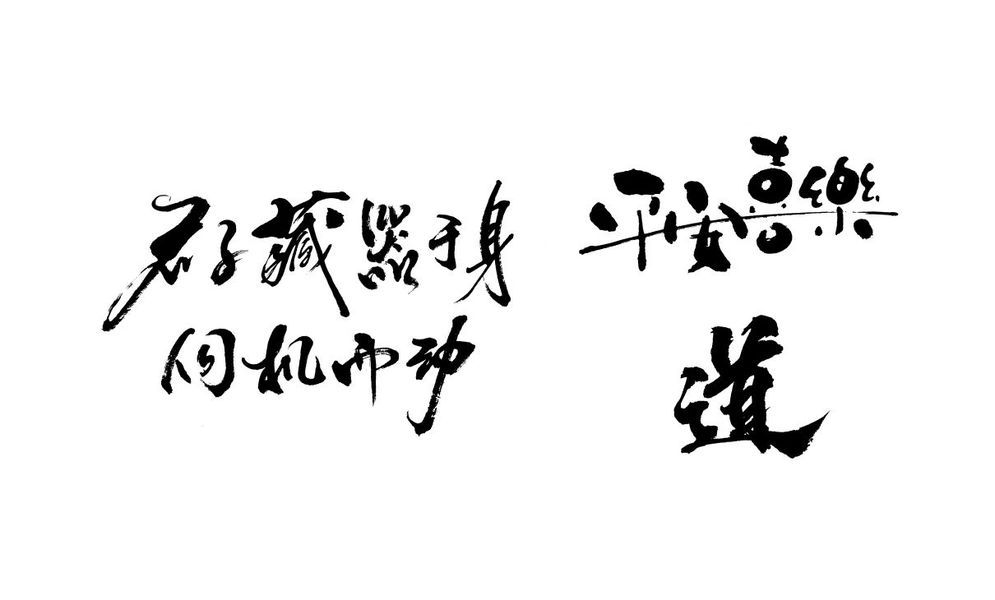 君子藏器于身
伺机而动
平安喜樂
道